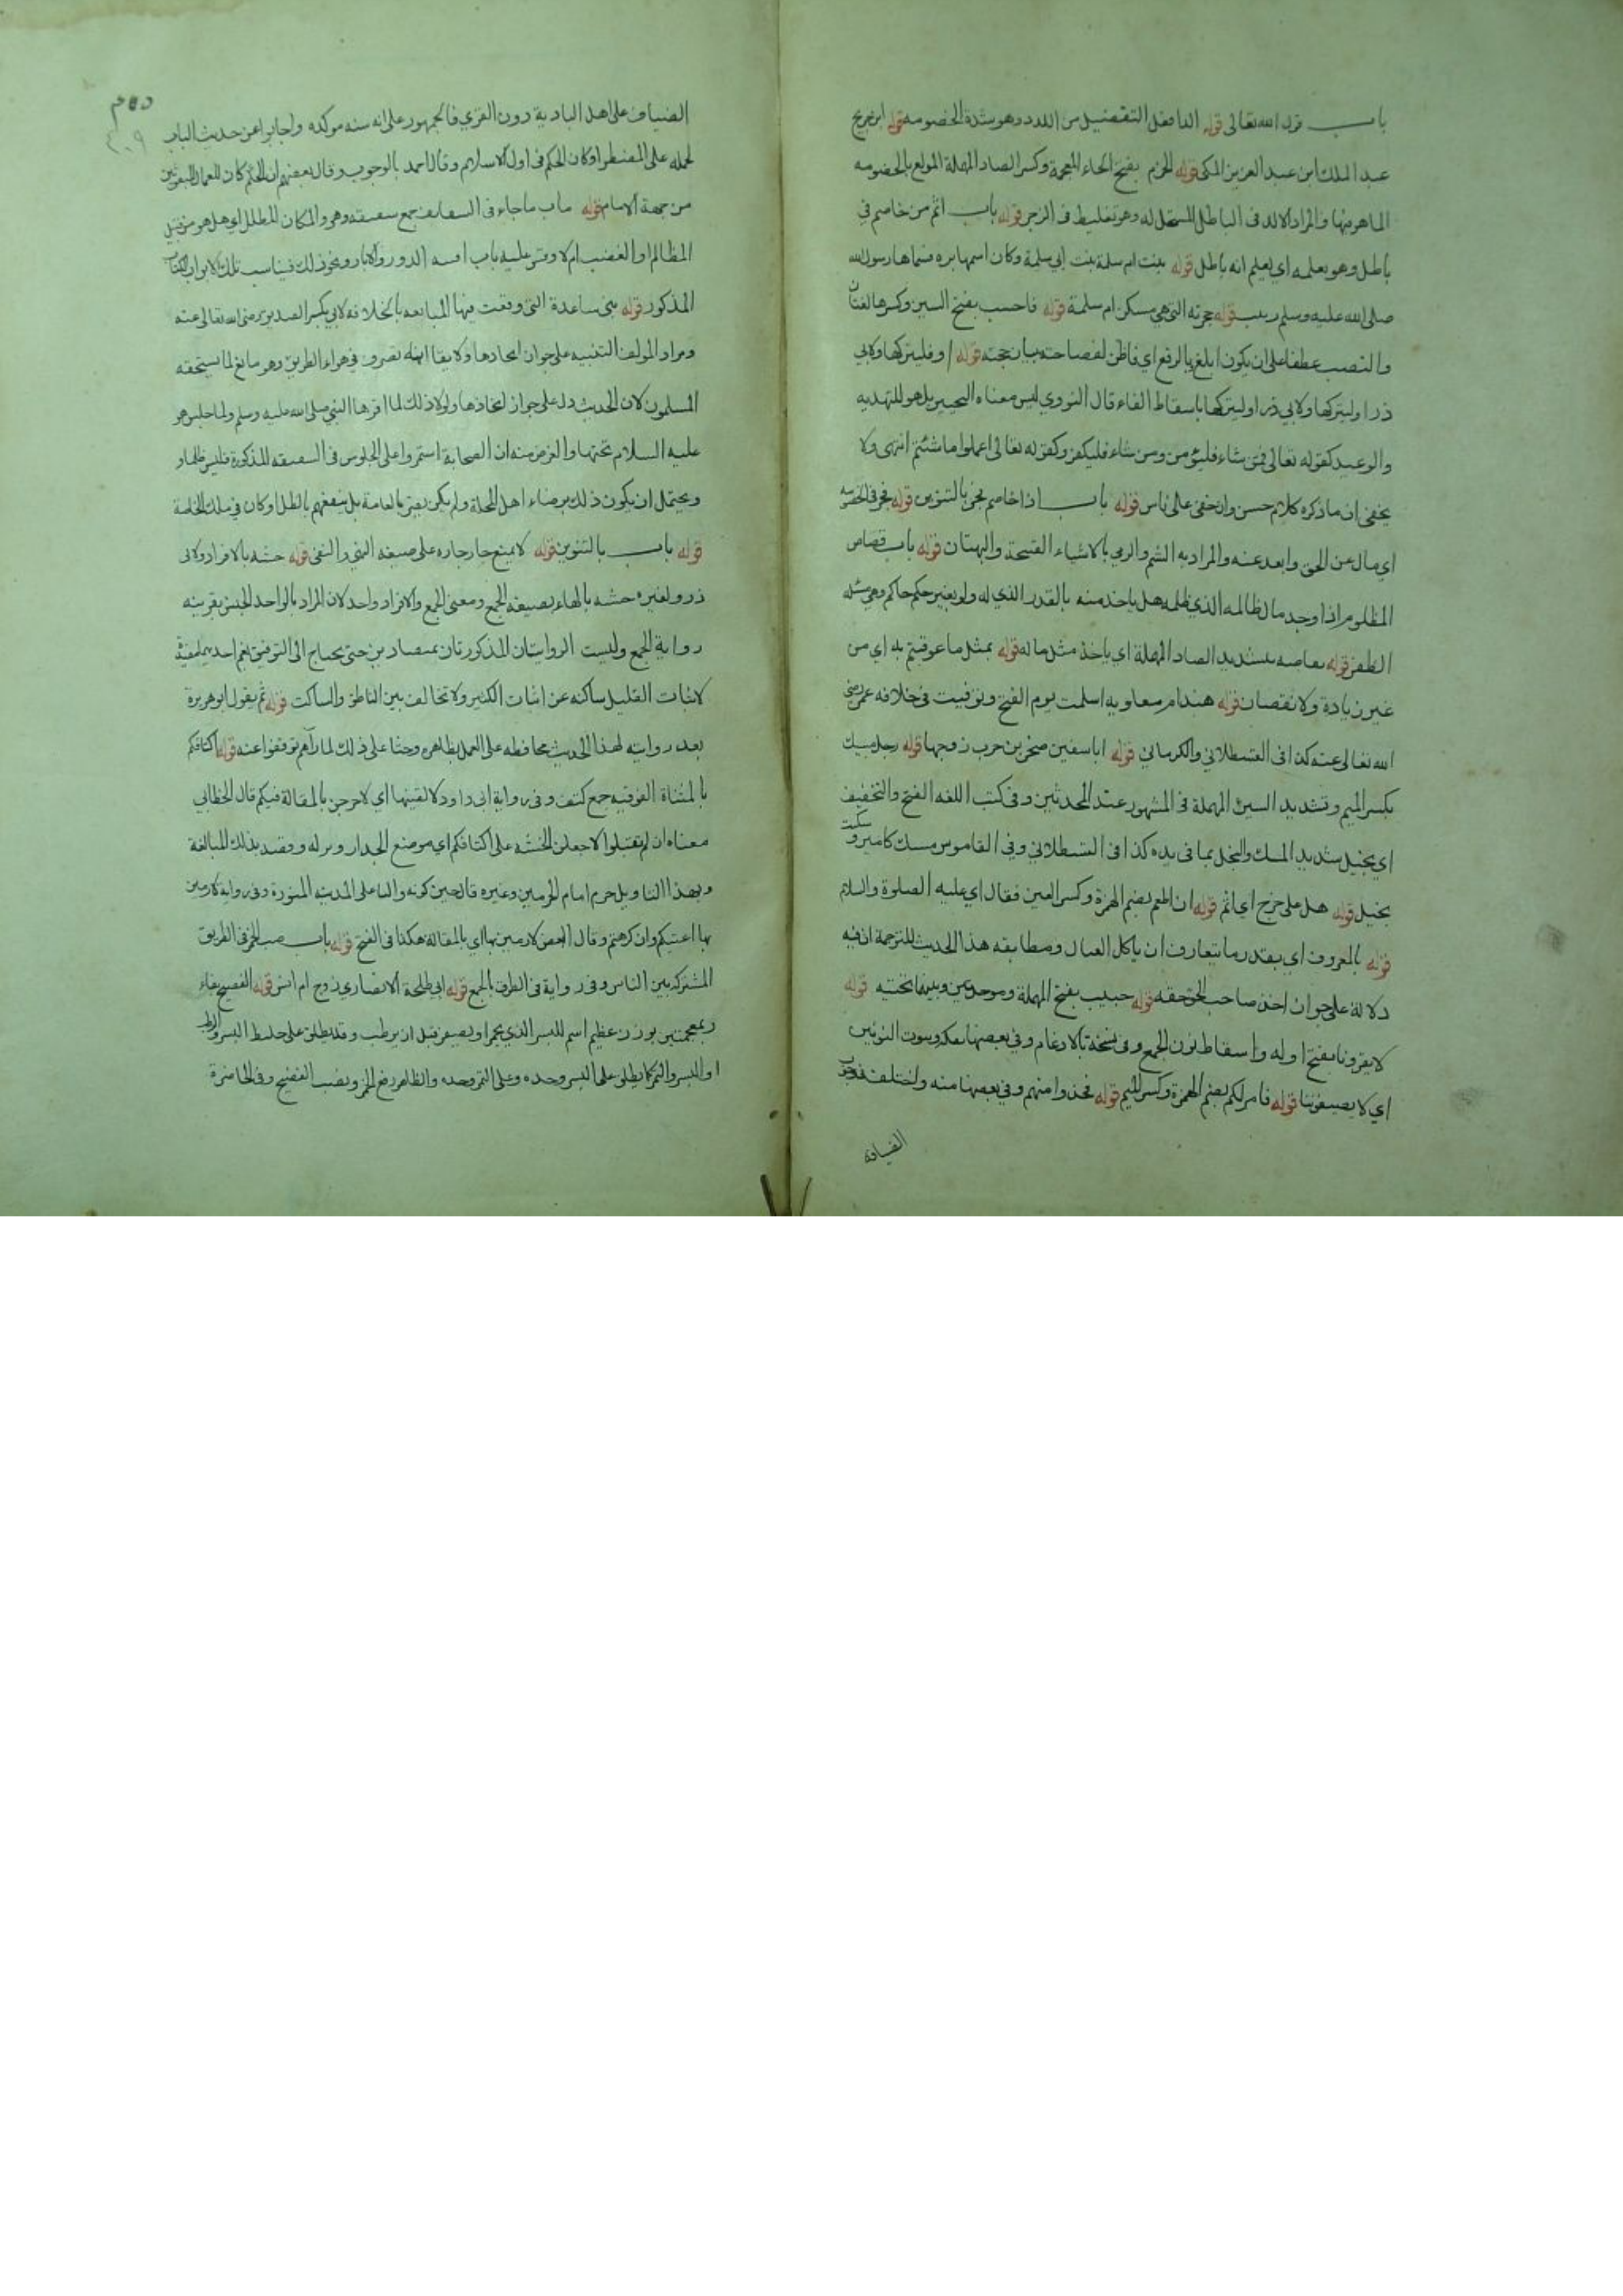 باب قول الله تعالى قوله الد افعل التفضيل من اللدد وهو شدة الخصومه قوله ابن جريج
عبد الملك ابن عبد العزيز المكى قوله الخصم بفتح الخاء المعجمة وكسر الصاد المهملة المولع بالخصومه
الماهر فيها والمراد الالد فى الباطل المستحل له وهو تغليظ فى الزجر قوله باب اثم من خاصم في
باطل وهو يعلمه اي يعلم انه باطل قوله بنت ام سلمة بنت ابي سلمة وكان اسمها بره فسماها رسول الله
صلى الله عليه وسلم زينب قوله حجرته التي هي مسكن ام سلمة قوله فاحسب بفتح السين وكسرها لغتان
والنصب عطفا على ان يكون ابلغ بالرفع اي فاظن لفصاحته ببيان حجته قوله او فليتركها ولابي
ذر او ليتركها ولابي ذر او ليتركها باسقاط الفاء قال النووي ليس معناه التخيير بل هو للتهديه
والوعيد كقوله تعالى فمن شاء فليؤمن ومن شاء فليكفر وكقوله تعالى اعملوا ما شئتم انتهى ولا
يخفى ان ما ذكره كلام حسن وان خفي على ناس قوله باب اذا خاصم فجر بالتنوين قوله فجر فى الخصومه
اي مال عن الحق وابعد عنه والمراد به الشتم والرمي بالاشياء القبيحة والبهتان قوله باب قصاص
المظلوم اذا وجد مال ظالمه الذي ظلمه هل ياخذ منه بالقدر الذي له ولو بغير حكم حاكم وهي مسئله
الظفر قوله يقاصه بتشديد الصاد المهملة اي ياخذ مثل ماله قوله بمثل ما عوقبتم به اي من
غير زيادة ولا نقصان قوله هند ام معاويه اسلمت يوم الفتح وتوفيت فى خلافه عمر رضى
الله تعالى عنه كذا فى القسطلاني والكرماني قوله ابا سفين صخر بن حرب زوجها قوله رجل مسيك
بكسر الميم وتشديد السين المهملة فى المشهور عند المحدثين وفى كتب اللغه الفتح والتخفيف
اي بخيل شديد المسك والبخل بما فى يده كذا فى القسطلاني وفي القاموس مسيك كامير وسكيت
بخيل قوله هل علي حرج اي اثم قوله ان اطعم بضم الهمزة وكسر العين فقال اي عليه الصلوة والسلام
قوله بالمعروف اي بقدر ما يتعارف ان ياكل العيال ومطابقه هذا الحديث للترجمة اذ فيه
دلالة على جوان اخذ صاحب الحق حقه قوله حبيب بفتح المهملة وموحدتين وبينهما تحتيه قوله
لا يقرونا بفتح اوله واسقاط نون الجمع وفى نسخة بالادغام وفي بعضها بفكه وبثبوت النونين
اي لا يضيفوننا قوله فامر لكم بضم الهمزة وكسر الميم قوله فخذوا منهم وفى بعضها منه واختلف فى وجوب
الضيافه
الضياف على اهل البادية دون القري فالجمهور على انه سنه موكده واجابوا عن حديث الباب
لحمله على المضطر او كان الحكم فى اول الاسلام وقال احمد بالوجوب وقال بعضهم ان الحكم كان للعمال المبعوثين
من جهة الامام قوله باب ما جاء فى السقايف جمع سقيفه وهو المكان المظلل اي هل هو من قبيل
المظالم او الغضب ام لا وقس عليه باب افنيه الدور والابار ونحو ذلك فيناسب تلك الابواب الكتاب
المذكور قوله بنى ساعدة التى وقعت فيها المبايعه بالخلافه لابي بكر الصديق رضى الله تعالى عنه
ومراد المولف التنبيه على جوان اتخاذها ولا يقال انه تصرف في هواء الطريق وهو مانع لما يستحقه
المسلمون لان الحديث دل على جواز اتخاذها ولولا ذلك لما اقرها النبي صلى الله عليه وسلم ولما جلس هو
عليه السلام تحتها والغرض منه ان الصحابة استمروا على الجلوس فى السقيفه المذكورة فليس ظلما و
ويحتمل ان يكون ذلك برضاء اهل المحلة ولم يكن يضر بالعامة بل ينفعهم بالظل او كان في ملك الخاصة
قوله باب بالتنوين قوله لا يمنع جار جاره على صيغه النهي والنفى قوله خشبه بالافراد ولابى
ذر ولغيره خشبه بالهاء بصيغه الجمع ومعنى الجمع والافراد واحد لان المراد بالواحد الجنس بقرينه
رواية الجمع وليست الروايتان المذكورتان بمتضادين حتى يحتاج الى التوفيق نعم احديهما مفيدة
لاثبات القليل ساكته عن اثبات الكثير ولا تخالف بين الناطق والساكت قوله ثم يقول ابو هريرة
بعد روايته لهذا الحديث محافظه على العمل بظاهره وحثا على ذلك لما رآهم توقفوا عنه قوله اكتافكم
بالمثناة الفوقيه جمع كتف وفى رواية ابى داود لالقينها اي لاصرخن بالمقالة فيكم قال الخطابي
معناه ان لم تقبلوا لاجعلن الخشبه على اكتافكم اي موضع الجدار ونزله وقصد بذلك المبالغة
وبهذا التاويل جزم امام الحرمين وغيره قال حين كونه واليا على المدينه المنورة وفى روايه لارمين
بها اعينكم وان كرهتم وقال البعض لارمين بها اي بالمقالة هكذا فى الفتح قوله باب صب الخمر فى الطريق
المشتركه بين الناس وفى رواية فى الطرق بالجمع قوله ابي طلحة الانصاري زوج ام انس قوله الفضيخ بفاء
ومعجمتين بوزن عظيم اسم للبسر الذي يحمر او يصفر قبل ان يرطب وقد يطلق على خليط البسر والرطب
او البسر والتمر كما يطلق على البسر وحده وعلى التمر وحده والظاهر رفع الخمر ونصب الفضيخ وفى الحاضرة